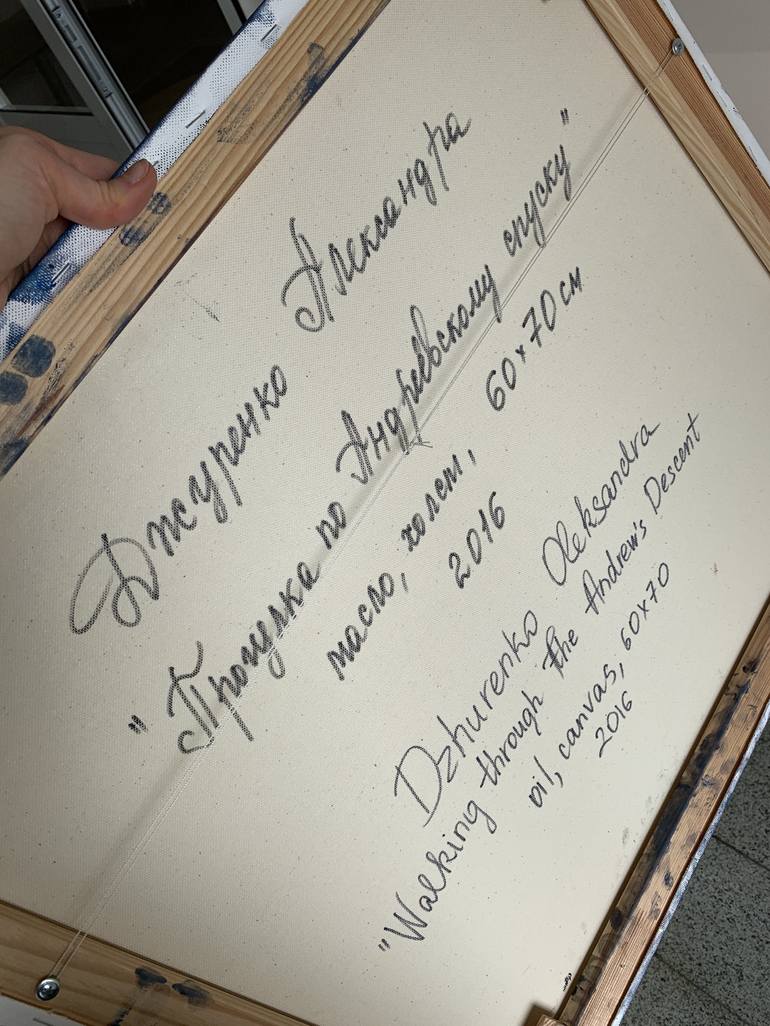 Джуренко Александра
"Прогулка по Андреевскому спуску"
масло, холст, 60x70 см
2016
Dzhurenko Oleksandra
"Walking through the Andrew's Descent
oil, canvas, 60x70
2016